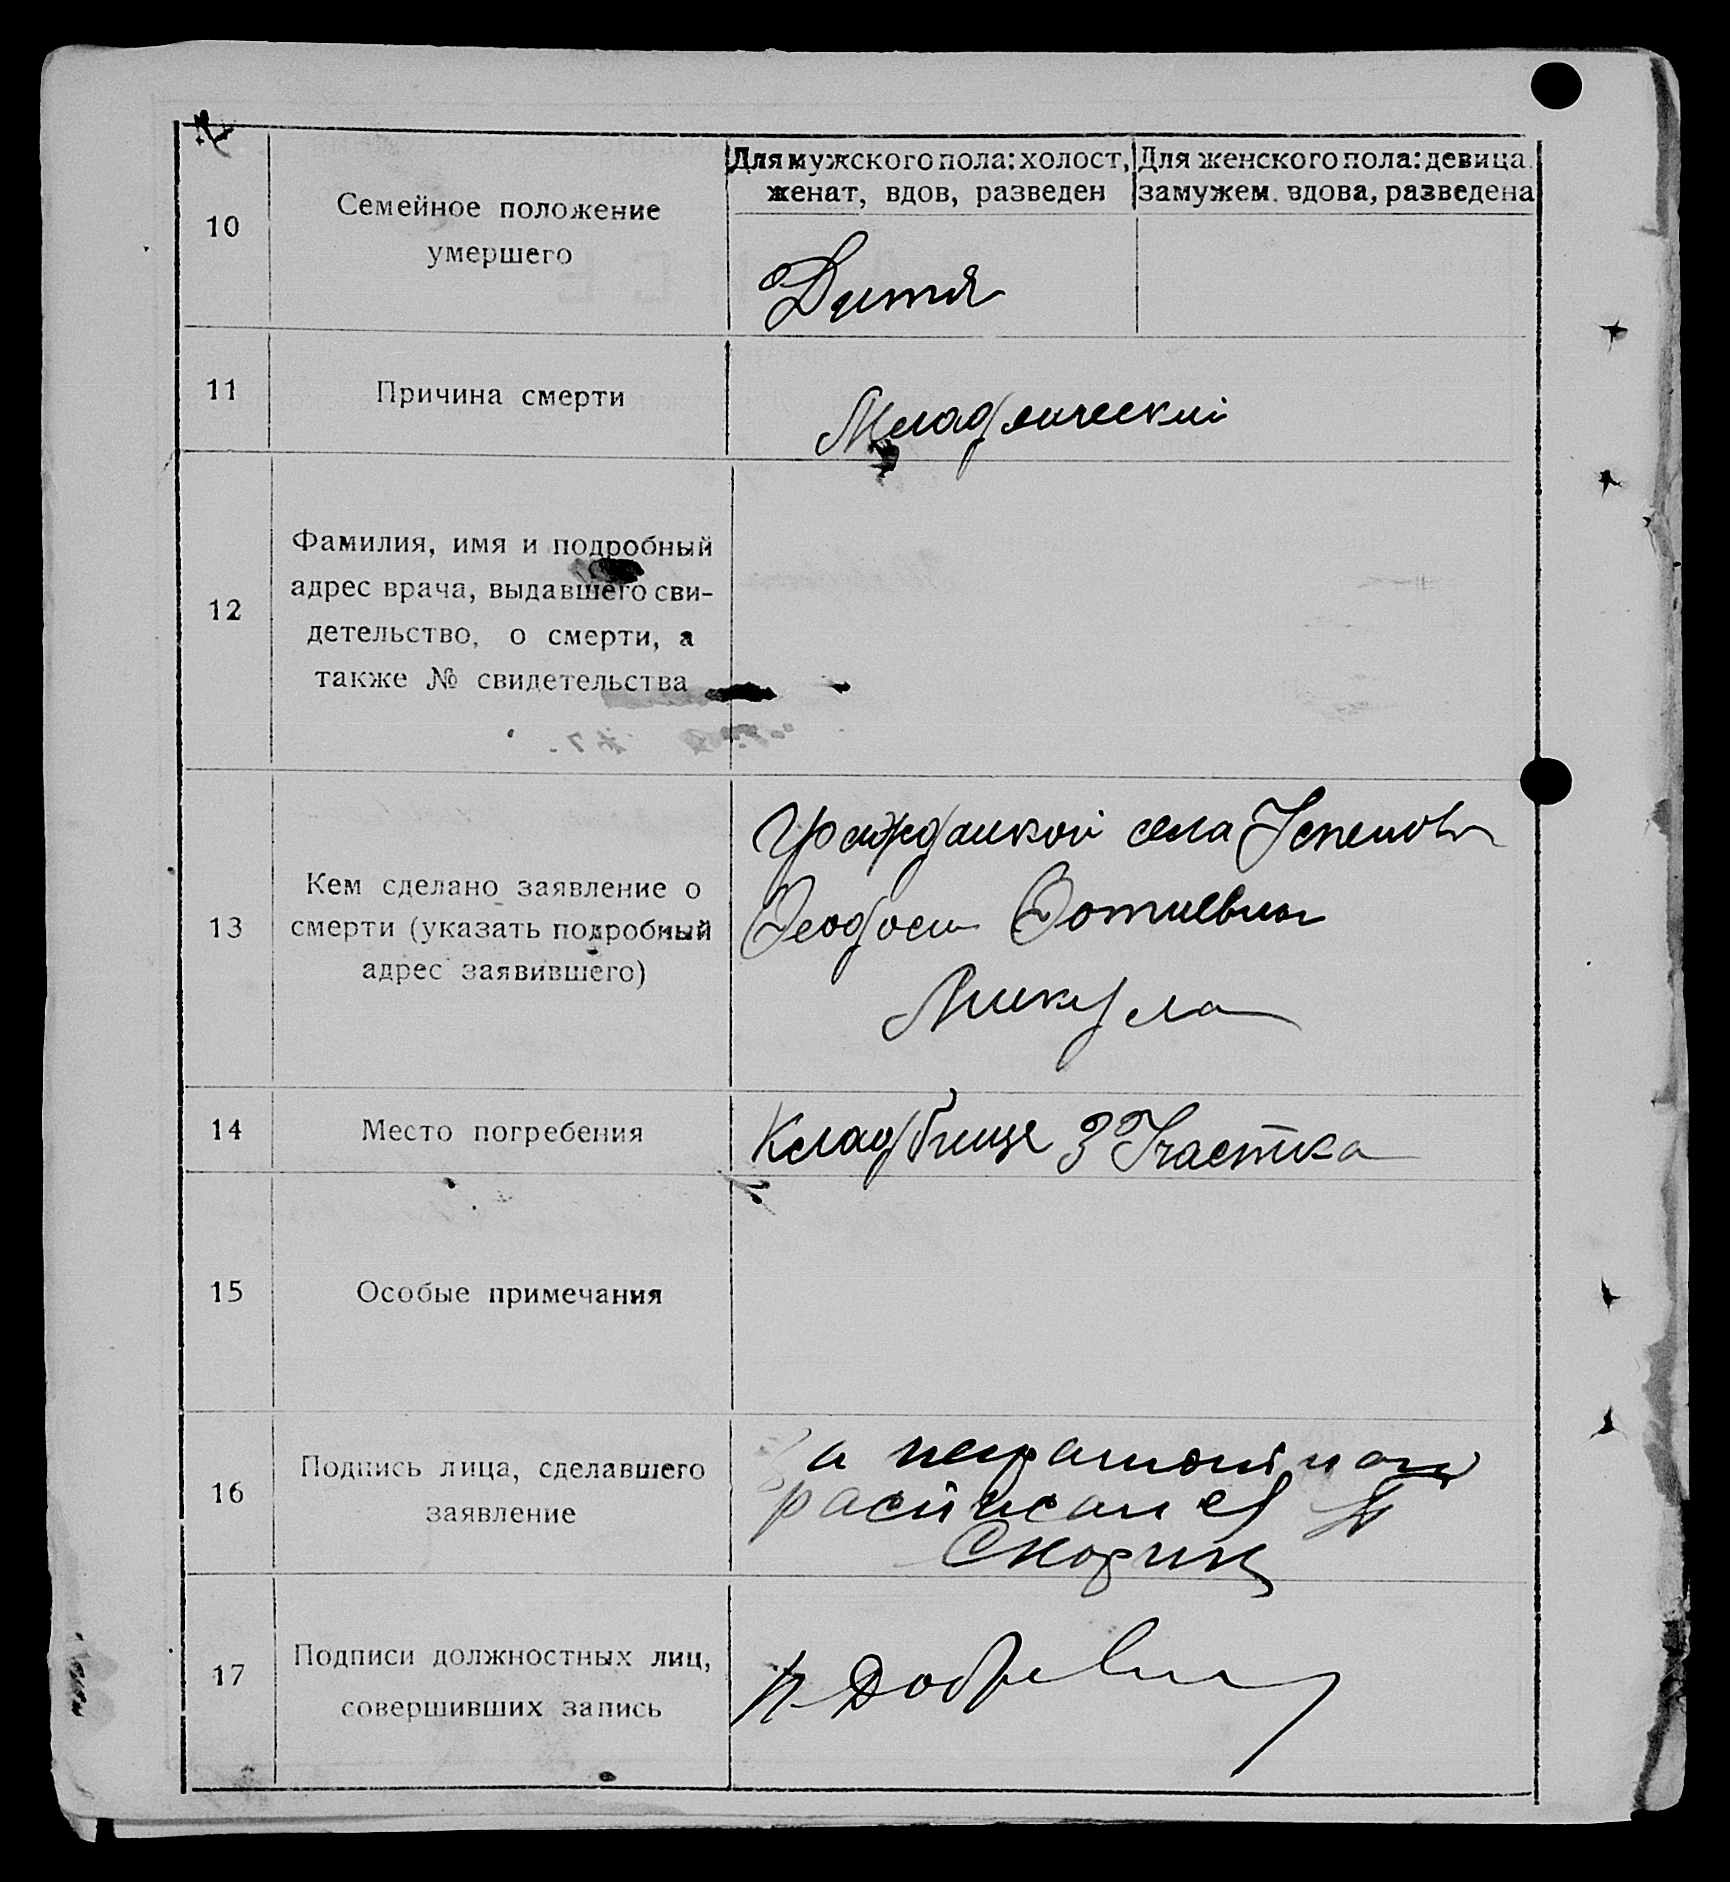 Для мужского пола: холост, женат, вдов, разведен
Для женского пола: девица. замужем. вдова, разведена
10
Семейное положение
умершего
Дитя
11
Причина смерти
Младенческий
12
Фамилия, имя и подробный
адрес врача, выдавшего сви-
детельство, о смерти, а
также № свидетельства
13
Кем сделано заявление о
смерти (указать подробный
адрес заявившего)
Гражданкой села
Феодосия Фотиевна
Микула
14
Место погребения
Кладбище 3 Участка
15
Особые примечания
16
Подпись лица, сделавшего
заявление
За неграмотную
расписался
Скорик
17
Подписи должностных лиц,
совершивших запись